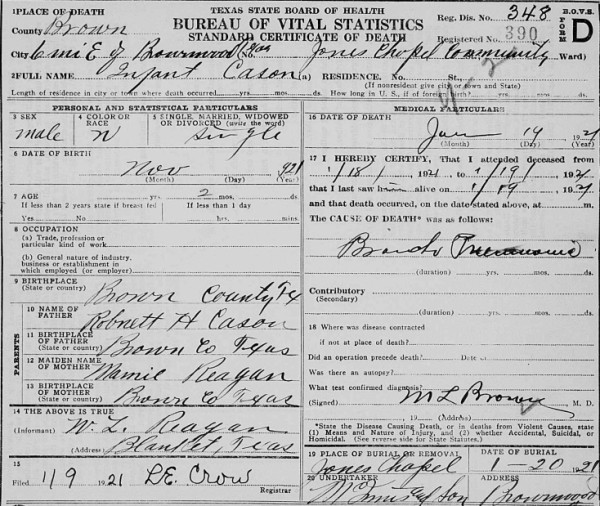 1 PLACE OF DEATH
TEXAS STATE BOARD OF HEALTH
B.O.V.S.
FORM D
County Brown
BUREAU OF VITAL STATISTICS
Reg. Dis. No. 348
STANDARD CERTIFICATE OF DEATH
Registered No. 390
City 6 mi E of Brownwood Jones Chapel Community Ward)
2 FULL NAME Infant Cason (a) RESIDENCE. No. St.,
(If nonresident give city or town and State)
Length of residence in city or town where death occurred yrs. mos. ds. How long in U. S., if of foreign birth? yrs. mos. ds.
PERSONAL AND STATISTICAL PARTICULARS
3 SEX
male
4 COLOR OR RACE
5 SINGLE, MARRIED, WIDOWED OR DIVORCED (write the word)
single
6 DATE OF BIRTH
Nov 921
(Month) (Day) (Year)
7 AGE yrs. 2 mos. ds.
If less than 2 years state if breast fed If less than 1 day
Yes No hrs. mins.
8 OCCUPATION
(a) Trade, profession or
particular kind of work
(b) General nature of industry,
business or establishment in
which employed (or employer)
9 BIRTHPLACE
(State or country) Brown County Tex
PARENTS
10 NAME OF
FATHER Robnett H Cason
11 BIRTHPLACE
OF FATHER
(State or country) Brown Co Texas
12 MAIDEN NAME
OF MOTHER Mamie Reagan
13 BIRTHPLACE
OF MOTHER
(State or country) Brown Co Texas
14 THE ABOVE IS TRUE
(Informant) W. L. Reagan
(Address) Blanket, Texas
15
Filed 1/9 1921 Crow
Registrar
MEDICAL PARTICULARS
16 DATE OF DEATH
Jan 19
(Month) (Day) (Year)
17 I HEREBY CERTIFY, That I attended deceased from
1/18/ 192 to 1/19/ 192
that I last saw him alive on 1/19 192
and that death occurred, on the date stated above, at m.
The CAUSE OF DEATH* was as follows:
Broncho Pneumonia
(duration) yrs. mos. ds.
Contributory
(Secondary)
(duration) yrs. mos. ds.
18 Where was disease contracted
if not at place of death?
Did an operation precede death? Date of
Was there an autopsy?
What test confirmed diagnosis?
(Signed) M L Brown M. D.
19 (Address)
*State the Disease Causing Death, or in deaths from Violent Causes, state
(1) Means and Nature of Injury, and (2) whether Accidental, Suicidal, or
Homicidal. (See reverse side for State Statutes.)
19 PLACE OF BURIAL OR REMOVAL
Jones Chapel
DATE OF BURIAL
1-20 1921
20 UNDERTAKER
Son
ADDRESS
Brownwood